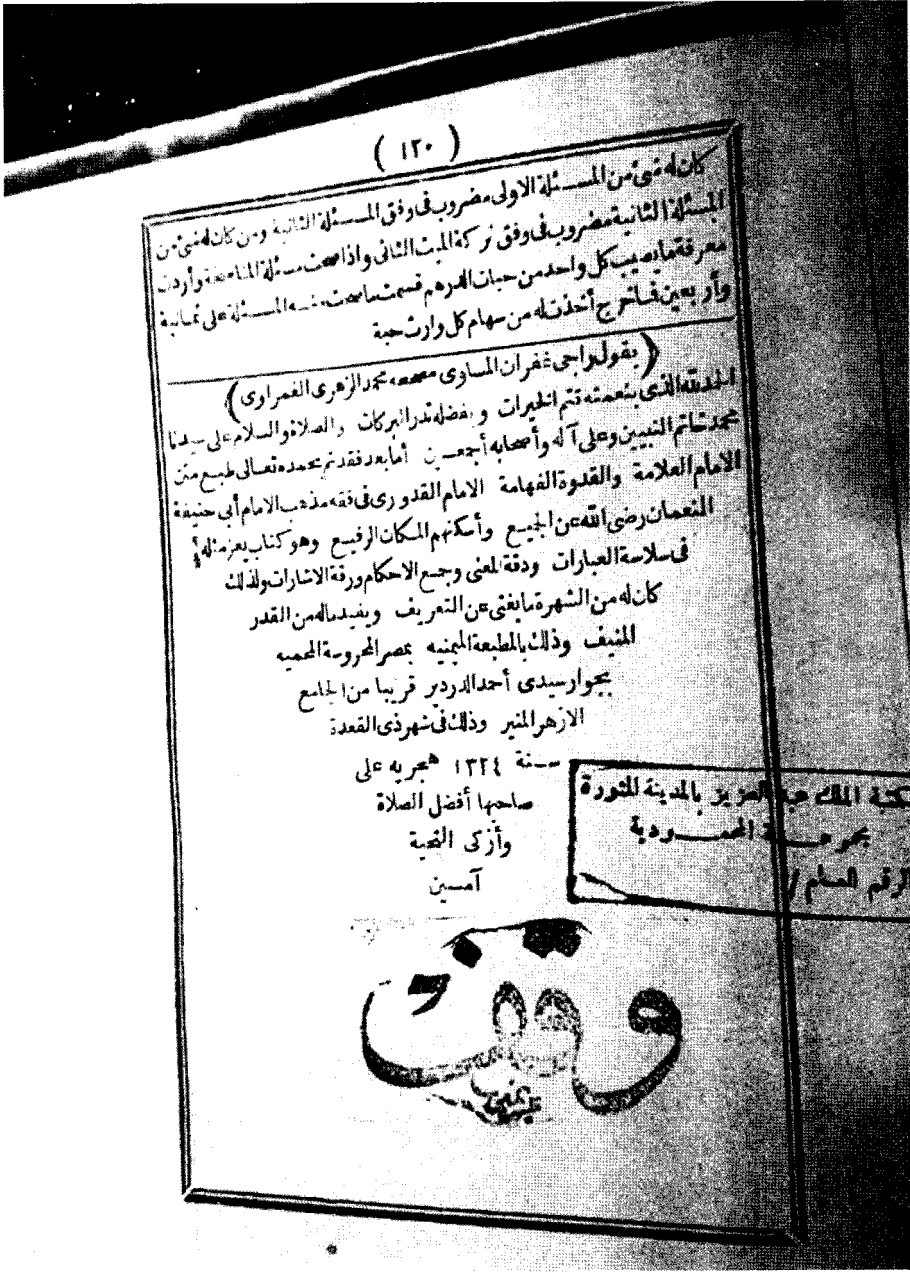 ( ١٢٠ )
كان له شئ من المسئلة الاولى مضروب فى وفق المسئلة الثانية ومن كان له شئ من
المسئلة الثانية مضروب فى وفق تركة الميت الثانى واذا صحت مسئلة المناسخة وأردت
معرفة ما يصيب كل واحد من حبات الدرهم قسمت ما صحت منه المسئلة على ثمانية
وأربعين فما خرج أخذت له من سهام كل وارث حبة
( يقول راجى غفران المساوى مصححه محمد الزهرى الغمراوى )
الحمد لله الذى بنعمته تتم الخيرات وبفضله تدر البركات والصلاة والسلام على سيدنا
محمد خاتم النبيين وعلى آله وأصحابه أجمعين أما بعد فقد تم بحمده تعالى طبع متن
الامام العلامة والقدوة الفهامة الامام القدورى فى فقه مذهب الامام أبى حنيفة
النعمان رضى الله عن الجميع وأسكنهم المكان الرفيع وهو كتاب يعز مثله
فى سلاسة العبارات ودقة المعنى وجمع الاحكام ورقة الاشارات ولذلك
كان له من الشهرة ما يغنى عن التعريف ويفيد ماله من القدر
المنيف وذلك بالمطبعة الميمنيه بمصر المحروسة المحميه
بجوار سيدى أحمد الدردير قريبا من الجامع
الازهر المنير وذلك فى شهر ذى القعدة
سنة ١٣٢٤ هجريه على
صاحبها أفضل الصلاة
وأزكى التحية
آمين
مكتبة الملك عبد العزيز بالمدينة المنورة
مجموعة المحمودية
الرقم العام /
وقف